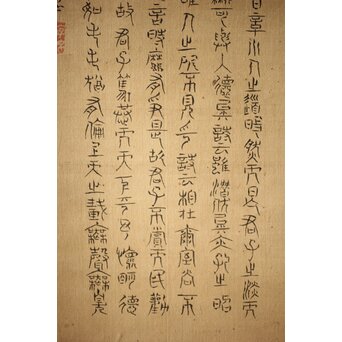 日章小人之道的然而日君子之淡而
可與入德矣詩云雖潛伏矣亦孔之昭
唯人之所不見乎詩云相在爾室尚不
言時靡有爭是故君子不賞而民勸
故君子篤恭而天下平予懷明德
如毛毛猶有倫上天之載無聲無臭